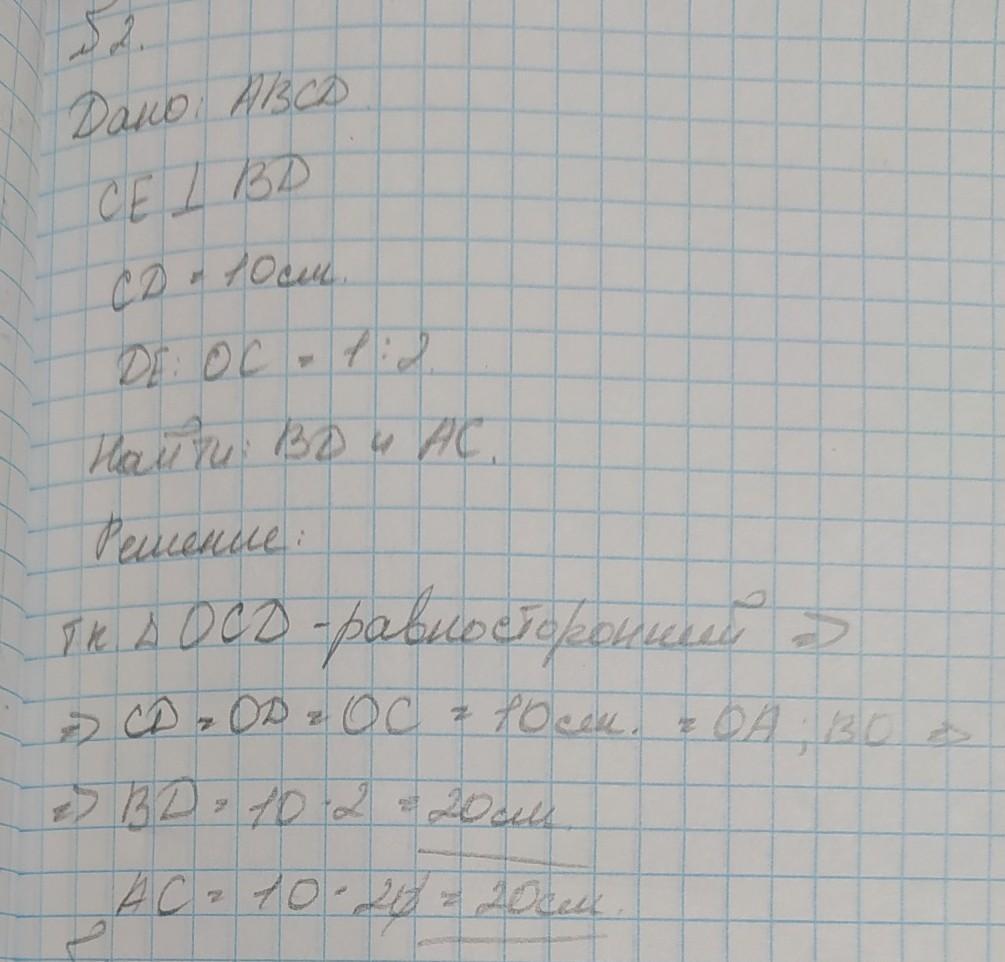 52.
Дано: ABCD
CE ⊥ BD
CD = 10см.
DE : OC = 1 : 2.
Найти: BD и AC.
Решение:
Тк Δ OCD - равносторонний =>
=> CD = OD = OC = 10см. = OA ; BO =>
=> BD = 10 · 2 = 20см.
AC = 10 · 2 = 20см.